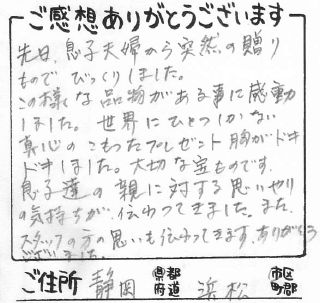 ご感想ありがとうございます
先日、息子夫婦から突然の贈り
ものでびっくりしました。
この様な品物がある事に感動
しました。世界にひとつしかない
真心のこもったプレゼント胸がドキ
ドキしました。大切な宝ものです。
息子達の親に対する思いやり
の気持ちが、伝わってきました。また、
スタッフの方の思いも伝わってきます。ありがとう
ございました。
ご住所 静岡 都道府県 浜松 市区町郡